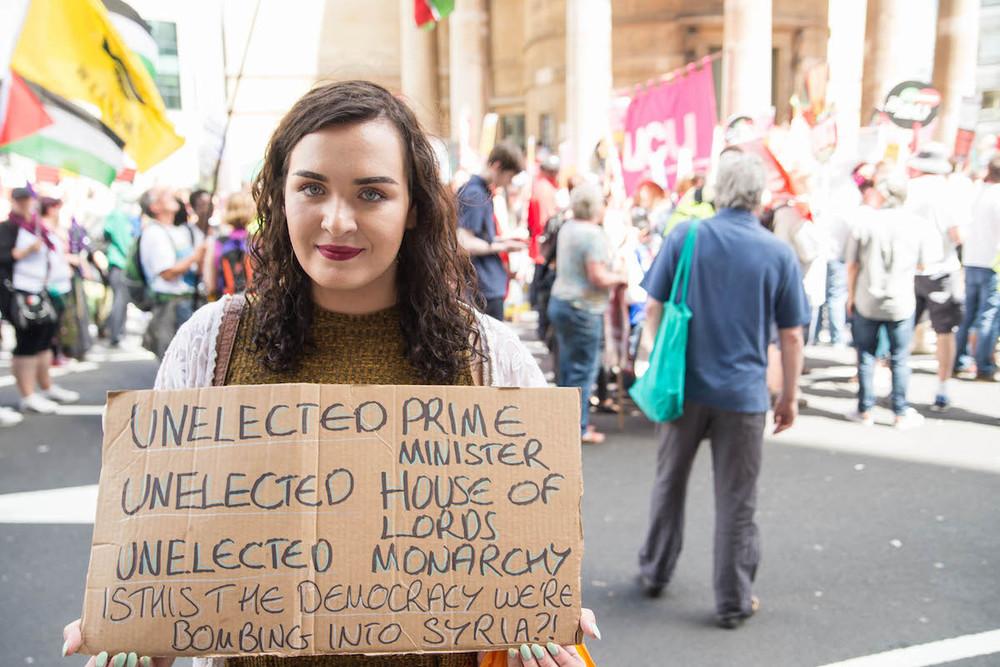 UNELECTED PRIME
MINISTER
UNELECTED HOUSE OF
LORDS
UNELECTED MONARCHY
IS THIS THE DEMOCRACY WE'RE
BOMBING INTO SYRIA?!
UCU